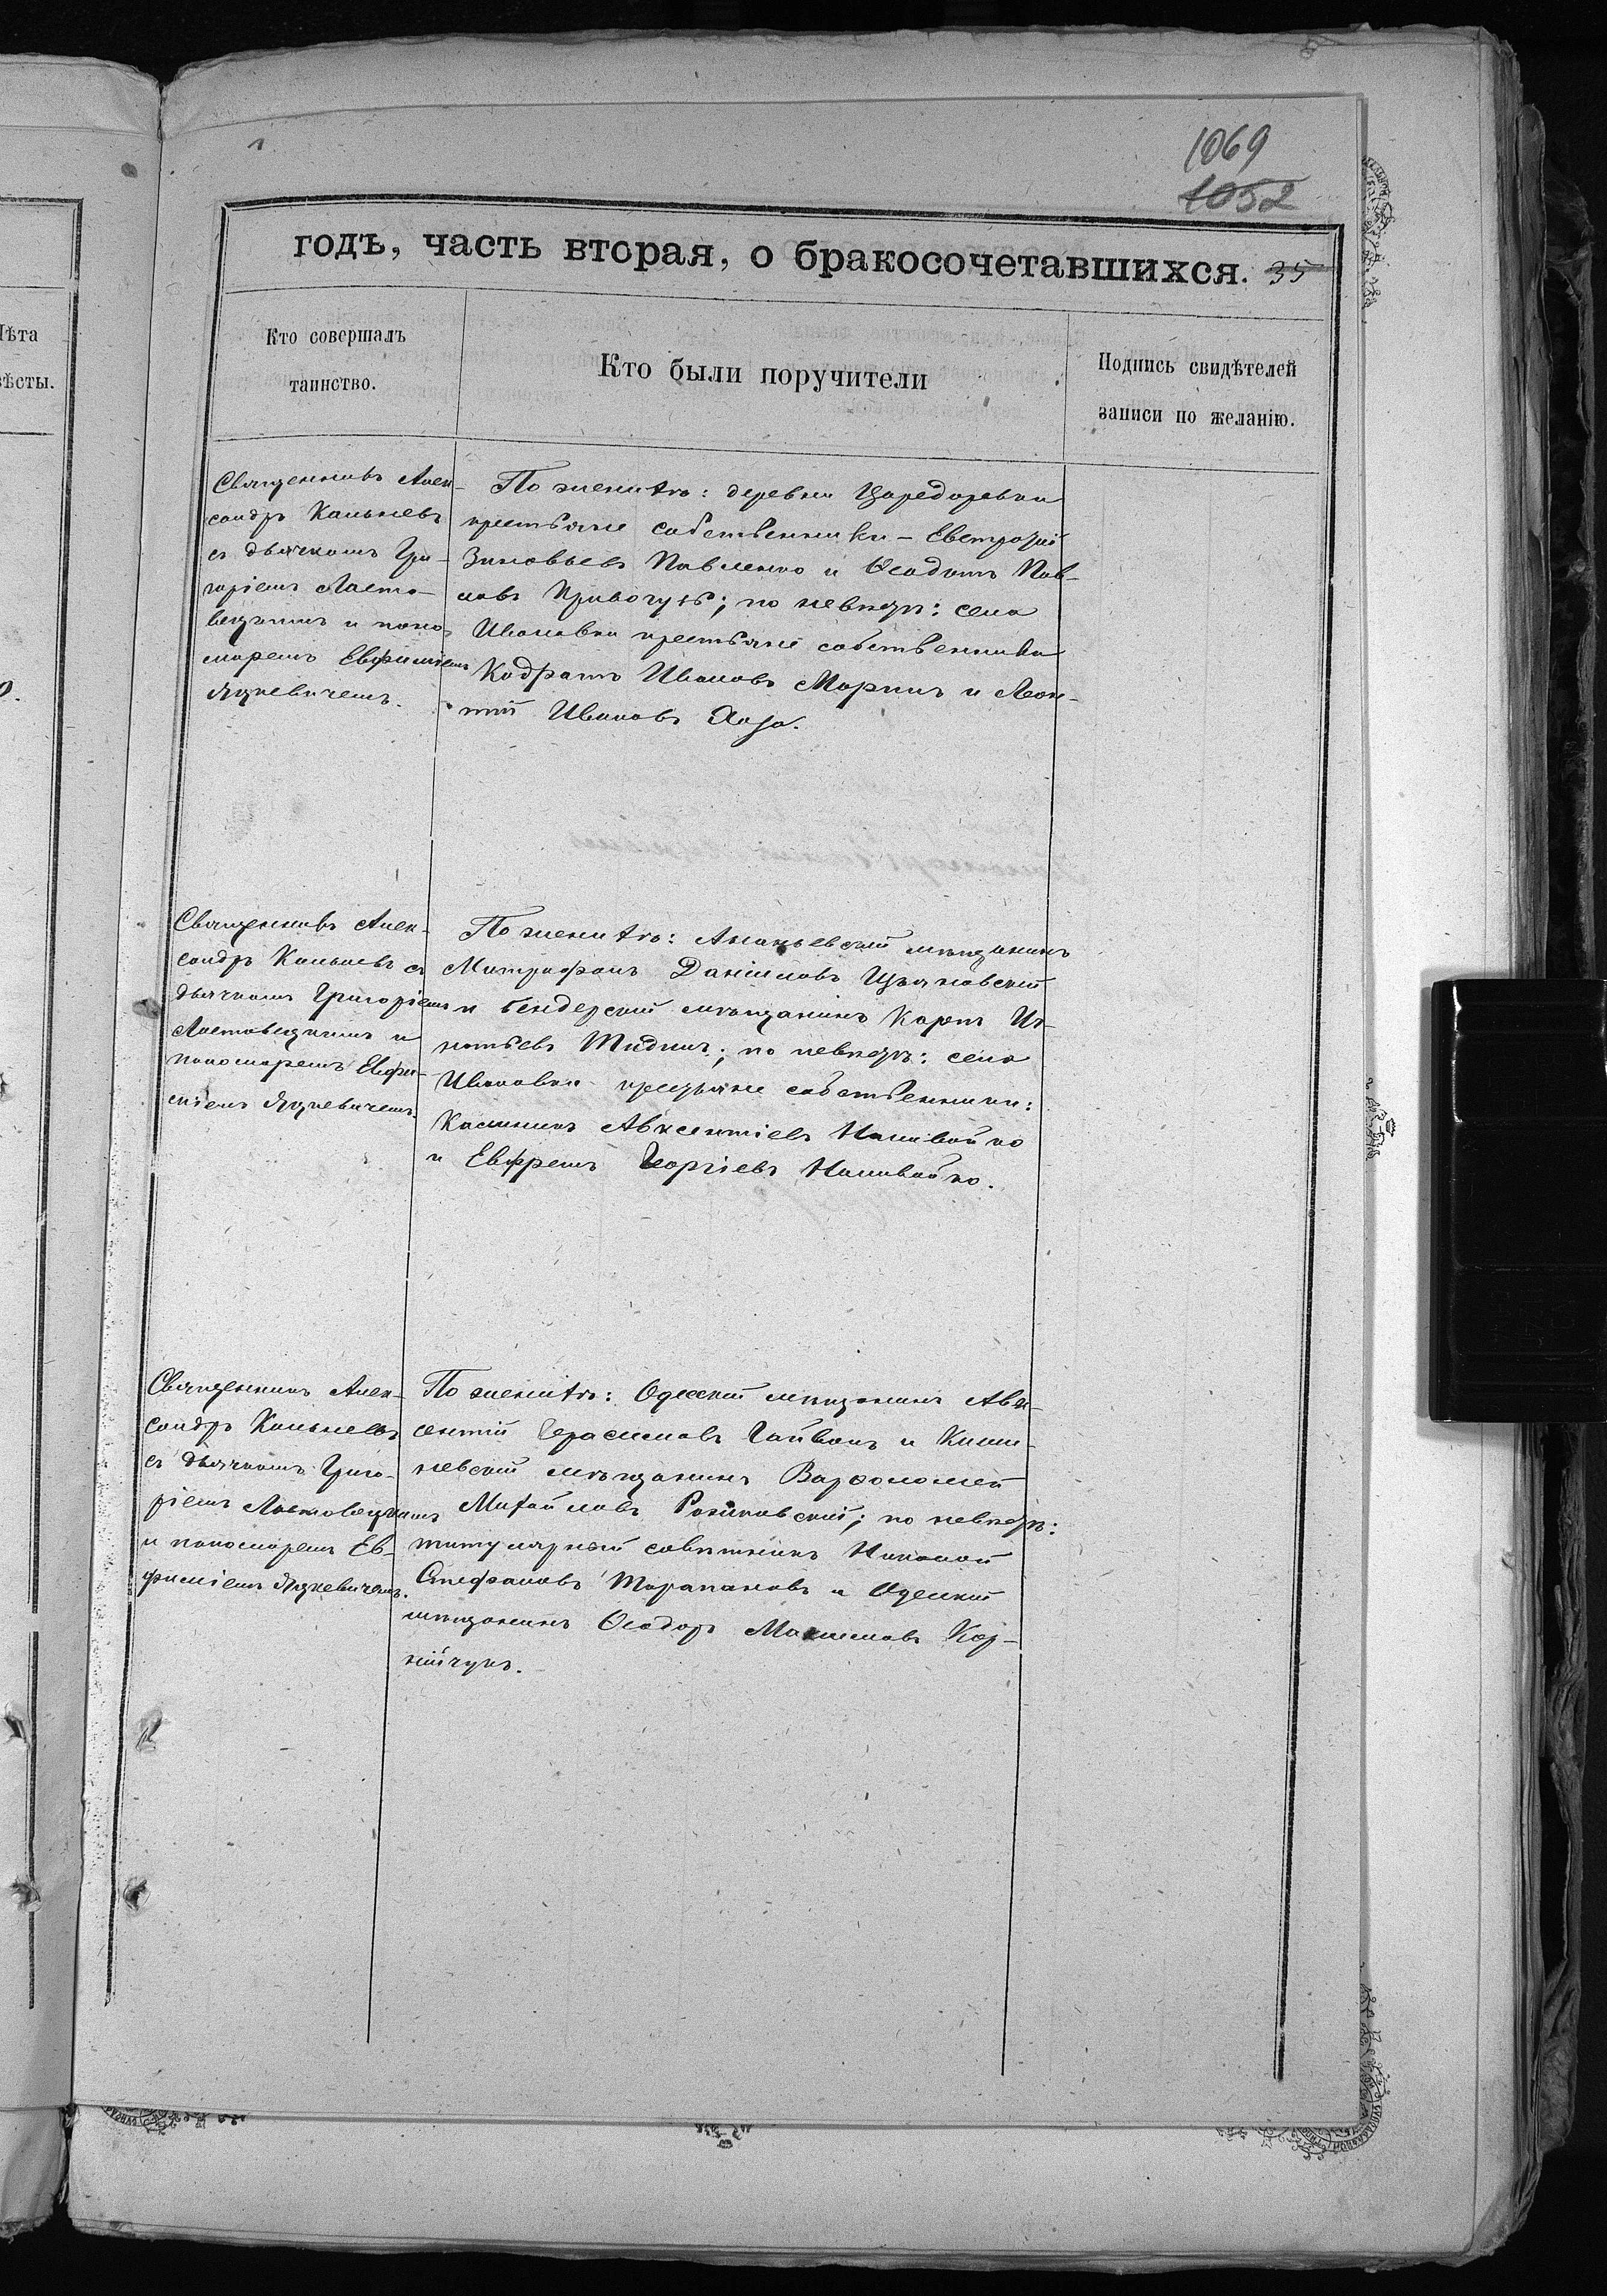 1069
1052
годъ, часть вторая, о бракосочетавшихся. 35
Лѣта
вѣсты.
Кто совершалъ
таинство.
Кто были поручители
Подпись свидѣтелей
записи по желанію.
Священникъ Алек-
сандръ Кальневъ
съ дьячкомъ Гри-
горіемъ Ласто-
вецкимъ и поно-
маремъ Евфиміемъ
Яцкевичемъ.
По женихѣ: деревни Цареdаровки
крестьяне собственники - Евстрафій
Зиновьевъ Павленко и Ѳеодотъ Пав-
ловъ; по невѣстѣ: села
Ивановки крестьяне собственники
Кодратъ Ивановъ и Леон-
тій Ивановъ
Священникъ Алек-
сандръ Кальневъ съ
дьячкомъ Григоріемъ
Ластовецкимъ и
пономаремъ Евфи-
міемъ Яцкевичемъ.
По женихѣ: Ананьевскій мѣщанинъ
Митрофанъ Даніиловъ
и бендерскій мѣщанинъ Карпъ Иг-
натьевъ; по невѣстѣ: села
Ивановки крестьяне собственники:
Калиникъ Авксентіевъ Наливайко
и Евфремъ Георгіевъ Наливайко.
Священникъ Алек-
сандръ Кальневъ
съ дьячкомъ Григо-
ріемъ Ластовецкимъ
и пономаремъ Ев-
фиміемъ Яцкевичемъ.
По женихѣ: Одесскій мѣщанинъ Авк-
сентій Герасимовъ Гайванъ и Киши-
невскій мѣщанинъ Варѳоломей
Михайловъ; по невѣстѣ:
титулярный совѣтникъ Николай
Стефановъ Тарапановъ и Одесскій
мѣщанинъ Ѳеодоръ Максимовъ Кор-
нійчукъ.